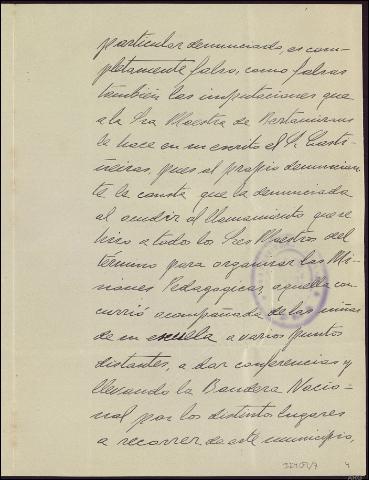 particular denunciado, es com-
pletamente falso, como falsas
también las imputaciones que
a la Sra Maestra de Bertamirans
le hace en su escrito el S. Casti-
ñeiras, pues al propio denuncian-
te le consta que la denunciada
al acudir al llamamiento que se
hizo a todos los Sres Maestros del
término para organizar las Mi-
siones Pedagogicas, aquella con-
currió acompañada de las niñas
de su escuela a varios puntos
distantes, a dar conferencias y
llevando la Bandera Nacio-
nal por los distintos lugares
a recorrer de este municipio,
4